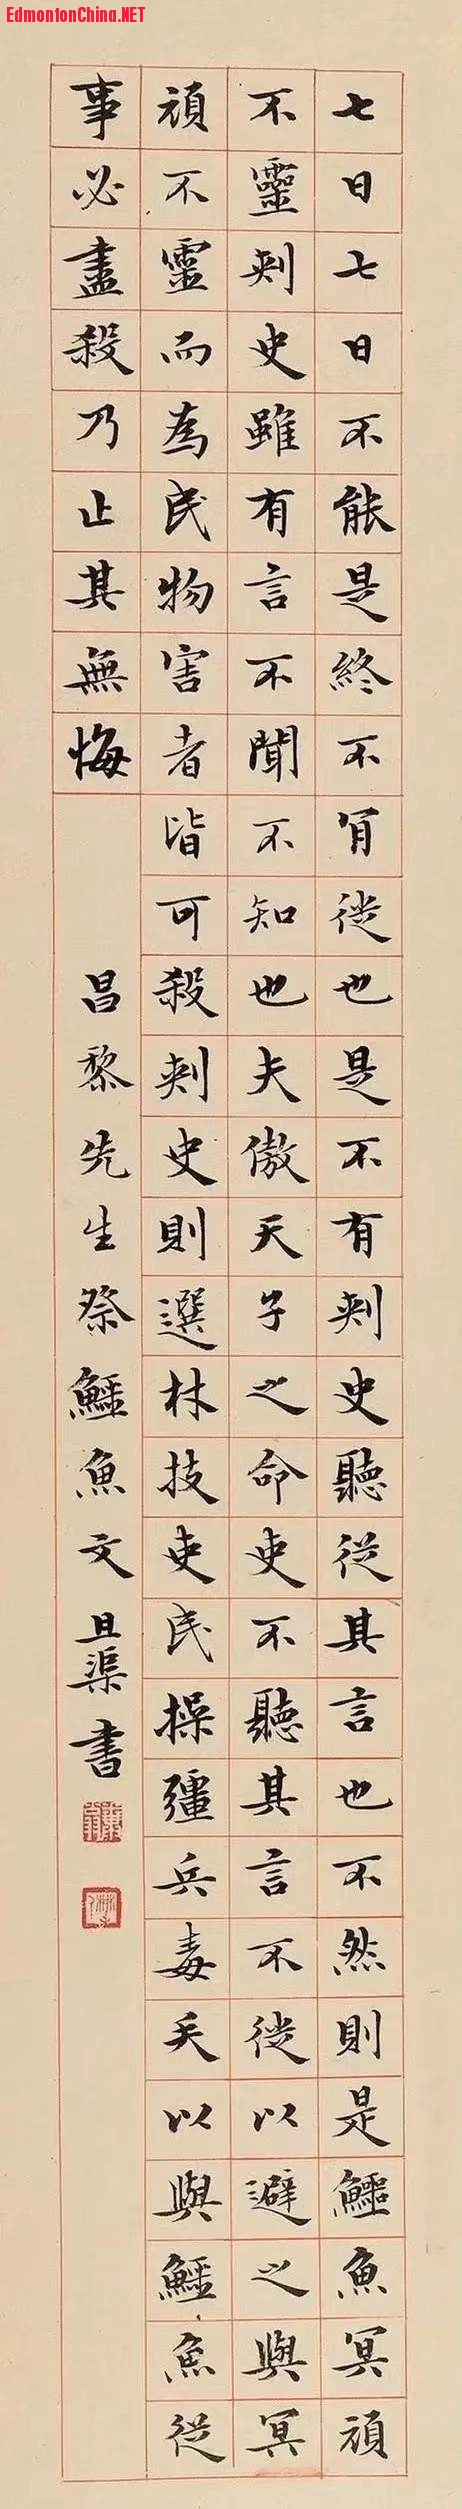 EdmontonChina.NET
七日七日不能是終不肯徙也是不有刺史聽從其言也不然則是鱷魚冥頑
不靈刺史雖有言不聞不知也夫傲天子之命吏不聽其言不徙以避之與冥
頑不靈而為民物害者皆可殺刺史則選材技吏民操彊兵毒矢以與鱷魚從
事必盡殺乃止其無悔
昌黎先生祭鱷魚文 且渠書